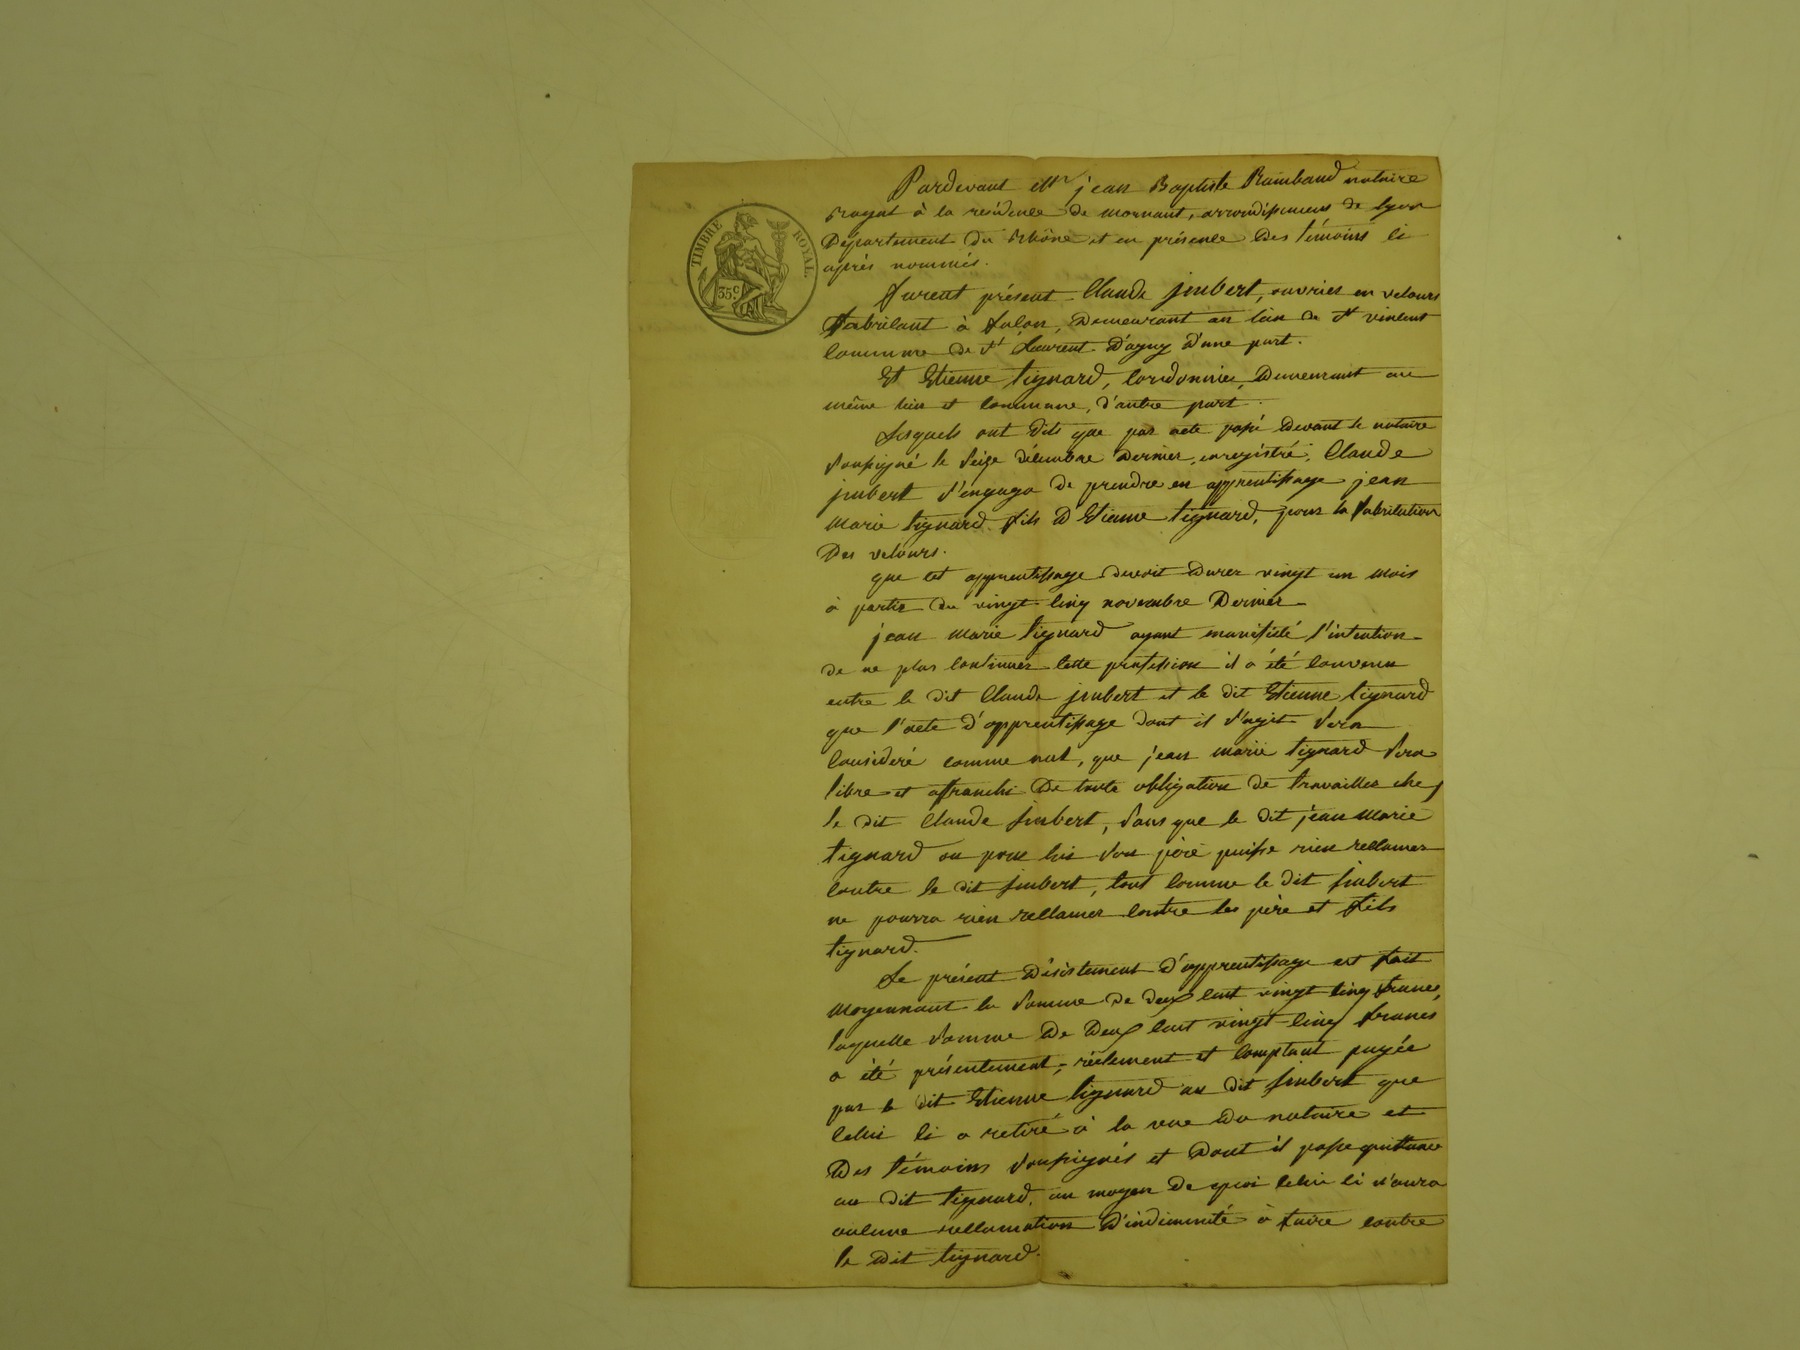 TIMBRE ROYAL
35c
Pardevant Mtre jean Baptiste Raimbaud notaire
Royal à la residence de mornant, arrondissement de lyon
Département du Rhône et en présence des témoins ci
après nommés.
furent présent Claude jmbert, ouvrier en velours
fabricant à façon, demeurant au lieu de St vincent
Commune de St Laurent d'agny d'une part.
Et Etienne tignard, Cordonnier, demeurant au
même lieu et Commune, d'autre part.
Lesquels ont dits que par acte passé devant le notaire
soussigné le seize décembre dernier, enregistré, Claude
jmbert s'engaga de prendre en apprentissage jean
Marie tignard fils d'Etienne tignard, pour la fabrication
des velours.
que cet apprentissage devoit durer vingt un mois
à partir du vingt-cinq novembre Dernier
jean Marie tignard ayant manifesté l'intention
de ne plus Continuer cette profession il a été Convenu
entre le dit Claude jmbert et le dit Etienne tignard
que l'acte d'apprentissage dont il s'agit sera
Considéré comme nul, que jean marie tignard sera
libre et affranchi de toute obligation de travailler chez
le dit Claude jmbert, sans que le dit jean Marie
tignard ou pour lui son père puisse rien reclamer
Contre le dit jmbert, tout Comme le dit jmbert
ne pourra rien reclamer Contre les père et fils
tignard.
Le présent désistement d'apprentissage est fait
Moyennant la somme de deux Cent vingt Cinq francs,
laquelle somme de deux Cent vingt-Cinq francs
a été présentement, réelement et Comptant payée
par le dit Etienne tignard au dit jmbert que
Celui Ci a retiré à la vue du notaire et
Des témoins soussignés et dont il passe quittance
au dit tignard, au moyen de quoi Celui Ci n'aura
aucune reclamation d'indemnité à faire Contre
le dit tignard.